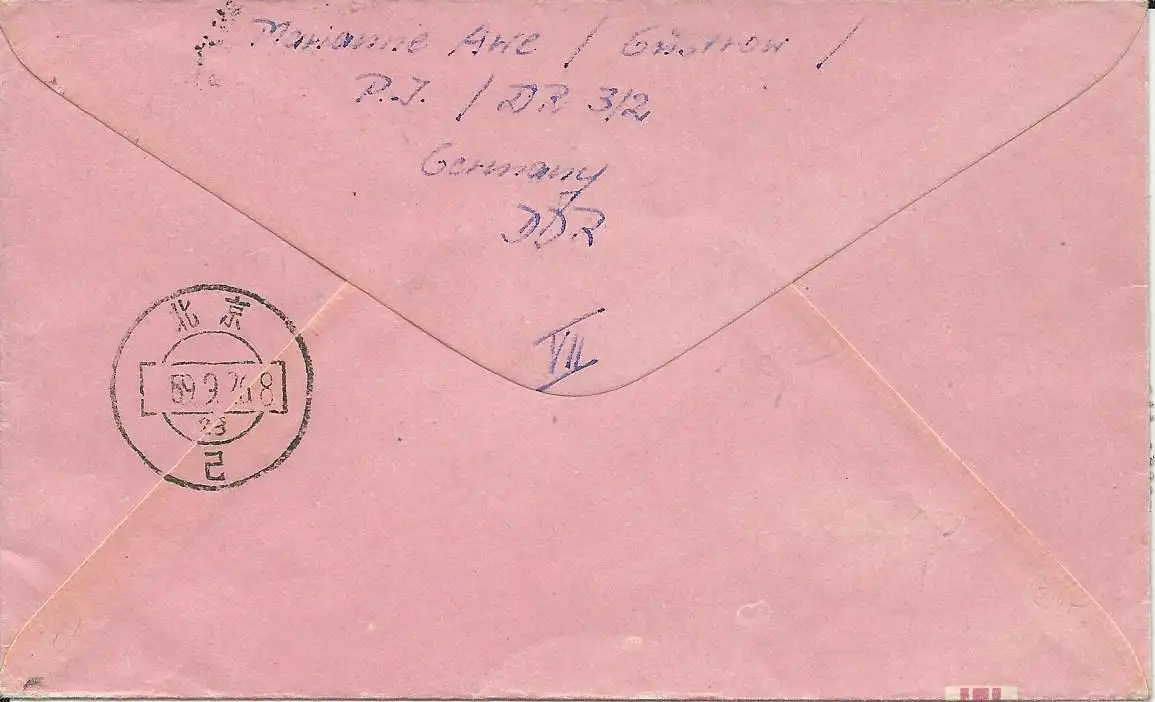 Marianne Awe / Güstrow /
P.J. / DR 312
Germany
DDR
VII
北京
69.9.26.8
23
己